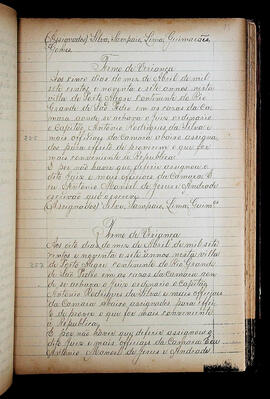 (Assignados) Silva, Sampaio, Lima, Guimarães
Gomes
Termo de Vreança
Aos cinco dias do mez de Abril de mil
sete centos e noventa e sete annos nesta
villa de Porto Alegre Continente do Rio
Grande de São Pedro em as casas da Ca-
mara aonde se achava o juiz ordinario
o Capitão Antonio Rodrigues da Silva e
mais officiaes da Camara abaixo assigna-
dos para effeito de proverem o que for
mais conveniente a Republica.
E por não haver que deferir assignou o
dito juiz e mais officiaes da Camara E
eu Antonio Manoel de Jesus e Andrade
escrivão que escrevi
(Assignados) Silva, Sampaio, Lima, Guim.es
Termo de Vreança
Aos oito dias do mez de Abril de mil sete
centos e noventa e sete annos nesta villa
de Porto Alegre Continente do Rio Grande
de São Pedro em as casas da Camara aon-
de se achava o juiz ordinario o Capitão
Antonio Rodrigues da Silva e mais officiaes
da Camara abaixo assignados para effei-
to de prover o que for mais conveniente
a Republica.
E por não haver que deferir assignou o
dito juiz e mais officiaes da Camara E eu
Antonio Manoel de Jesus e Andrade